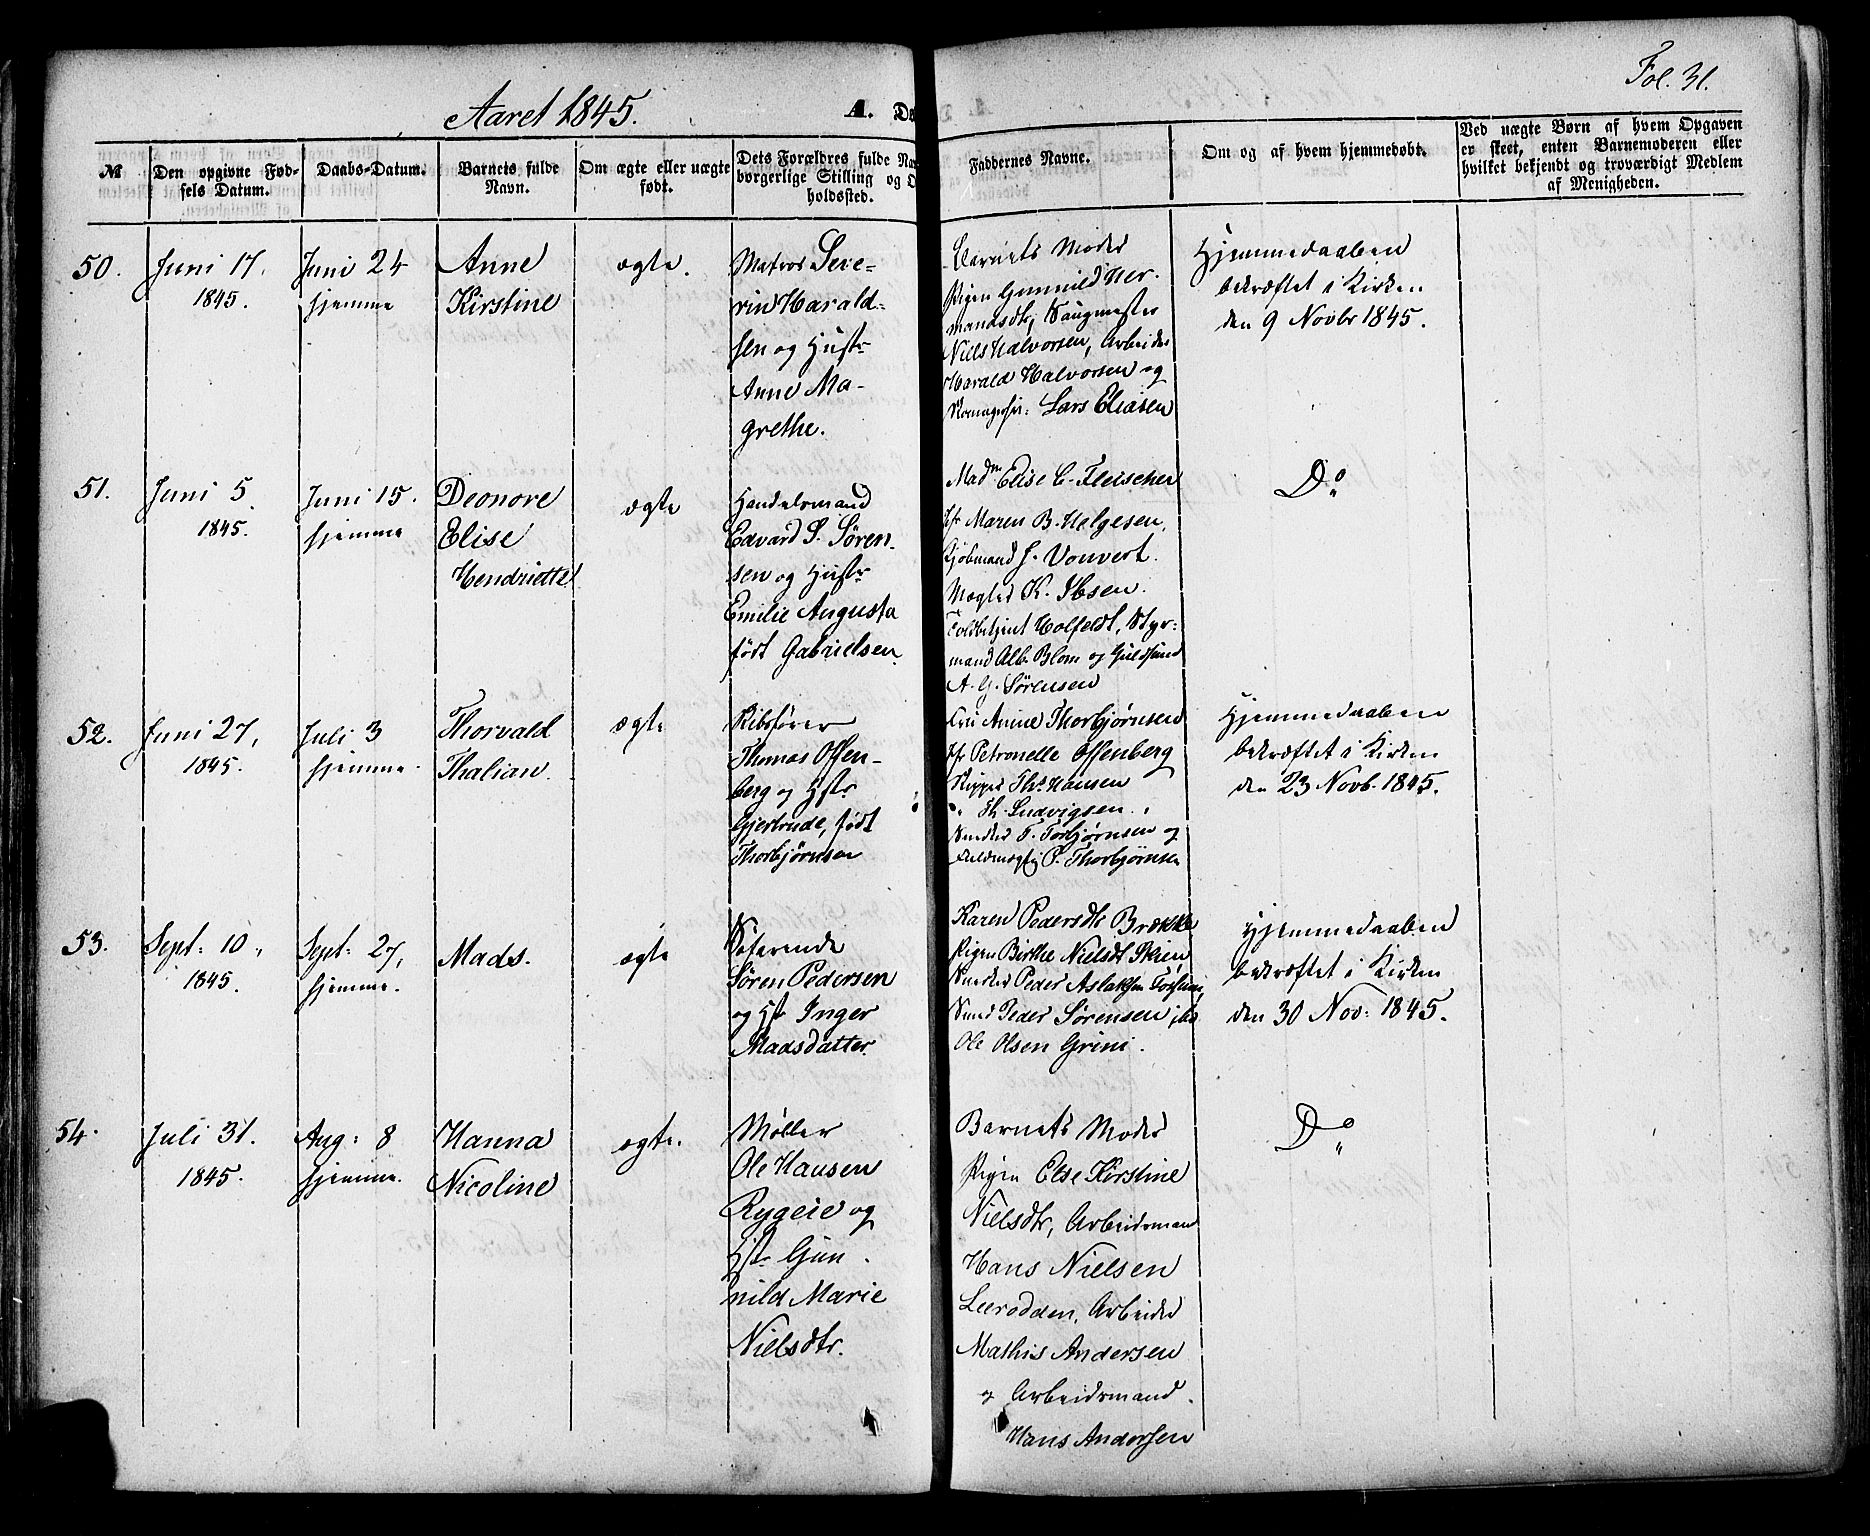 Fol. 31.
Aaret 1845.
A.
№
Den opgivne Fød-
sels Datum.
Daabs-Datum.
Barnets fulde
Navn.
Om ægte eller uægte
født.
Dets Forældres fulde
borgerlige Stilling og
holdssted.
Faddernes Navne.
Om og af hvem hjemmedøbt.
Ved uægte Børn af hvem Opgaven
er skeet, enten Barnemoderen eller
hvilket bekjendt og troværdigt Medlem
af Menigheden.
50.
Juni 17.
1845.
Juni 24
hjemme
Anne
Kirstine
ægte.
Matros Seve-
rin Harald-
sen og Hustr
Anne Ma-
grethe.
Barnets Moder
Pigen Gunnild Her-
mandsdtr, Saugmester
Niels Halvorsen, Arbeider
Harald Halvorsen og
Lars Eliasen
Hjemmedaaben
bekræftet i Kirken
den 9 Novbr 1845.
51.
Juni 5.
1845.
Juni 15.
hjemme
Deonore
Elise
Hendriette
ægte
Handelsmand
Edvard S. Søren-
sen og Hustr
Emilie Augusta
født Gabrielsen
Madm Elise C. Fleischer
Jfr Maren B. Helgesen,
Kjøbmand J. Vonvert.
Mægler K. Ibsen.
Toldbetjent Holfeldt, Styr-
mand Alb. Blom og Guldsmd
A. G. Sørensen
Do
52.
Juni 27,
1845.
Juli 3
hjemme.
Thorvald
Thalian.
ægte
Skibsfører
Thomas Offen-
berg og Hstr
Gjertrude, født
Thorbjørnsen
Fru Amine Thorbjørnsen
Jfr Petronelle Offenberg
Skipper Ths Hansen
Th. Ludvigsen.
Snedker T. Torbjørnsen og
Fuldmægtig P. Thorbjørnsen
Hjemmedaaben
bekræftet i Kirken
den 23 Novb. 1845.
53.
Sept: 10,
1845.
Sept: 27,
hjemme.
Mads.
ægte
Søfarende
Søren Pedersen
og Hstr Inger
Madsdatter.
Karen Pedersdtr Brække
Pigen Birthe Nielsdtr Skien
Snedker Peder Aslaksen
Peder Sørensen
Ole Olsen Grini.
Hjemmedaaben
bekræftet i Kirken
den 30 Nov: 1845.
54.
Juli 31.
1845.
Aug: 8
hjemme.
Hanna
Nicoline
ægte.
Møller
Ole Hansen
Rygeie og
Hstr Gun-
nild Marie
Nielsdtr.
Barnets Moder
Pigen Else Kirstine
Nielsdtr, Arbeidsmand
Hans Nielsen
Leerodden, Arbeider
Mathis Andersen
og Arbeidsmand
Hans Andersen
Do